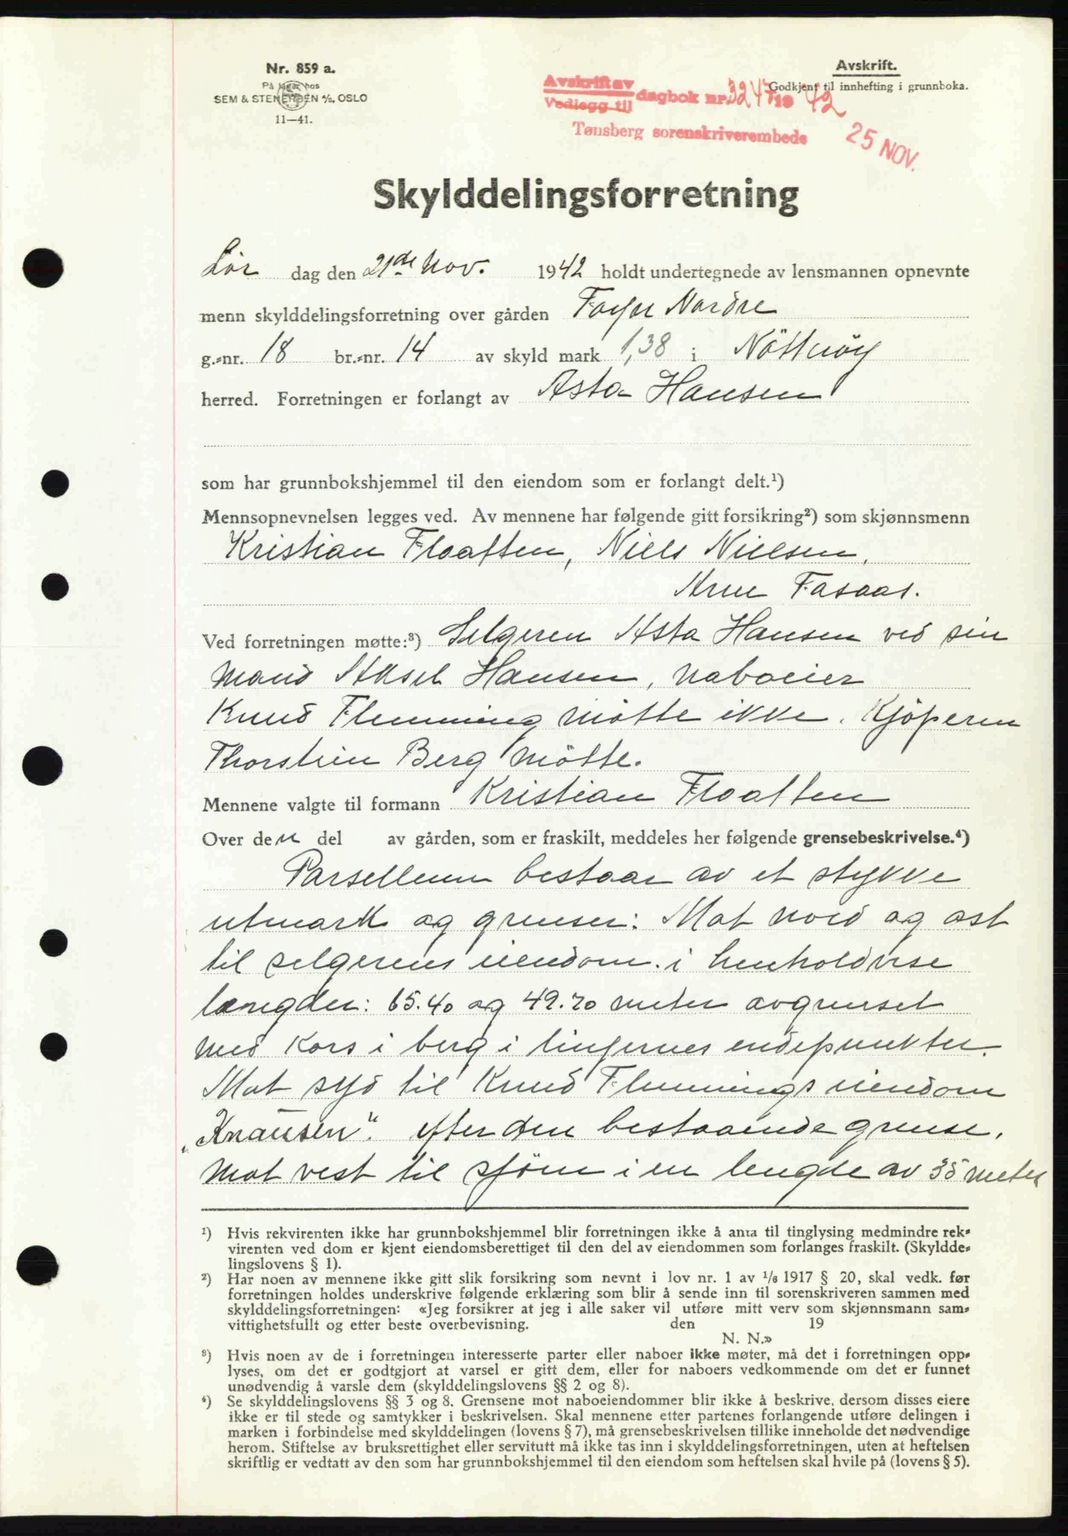 Nr. 859 a.
På lager hos
SEM & STENERSEN A/S, OSLO
11—41.
Avskrift av
Vedlegg til
dagbok nr. 3247 19 42
Tønsberg sorenskriverembede
25 NOV.
Avskrift.
Godkjent til innhefting i grunnboka.
Skylddelingsforretning
Lør dag den 21de Nov. 1942 holdt undertegnede av lensmannen opnevnte
menn skylddelingsforretning over gården Nordre
g.-nr. 18 br.-nr. 14 av skyld mark 1,38 i Nötteröy
herred. Forretningen er forlangt av Asta Hansen
som har grunnbokshjemmel til den eiendom som er forlangt delt.¹)
Mennsopnevnelsen legges ved. Av mennene har følgende gitt forsikring²) som skjønnsmenn
Kristian Floaften, Niels Nielsen,
Fasaas.
Ved forretningen møtte:³) Selgeren Asta Hansen ved sin
Mand Aksel Hansen, naboeier
Knud Flemming mötte ikke. Kjöperen
Thorstein Berg mötte.
Mennene valgte til formann Kristian Floaften
Over den del av gården, som er fraskilt, meddeles her følgende grensebeskrivelse.⁴)
Parsellen bestaar av et stykke
utmark og grenser: Mot nord og ost
til selgerens eiendom i henholdvise
længder: 65.40 og 49.70 meter avgrenset
med Kors i berg i linjernes endepunkter.
Mot syd til Knud Flemmings eiendom
„Knausen". efter den bestaaende grense.
Mot vest til sjöen i en lengde av 35 meter
¹) Hvis rekvirenten ikke har grunnbokshjemmel blir forretningen ikke å anta til tinglysing medmindre rek-
virenten ved dom er kjent eiendomsberettiget til den del av eiendommen som forlanges fraskilt. (Skyldde-
lingslovens § 1).
²) Har noen av mennene ikke gitt slik forsikring som nevnt i lov nr. 1 av 1/6 1917 § 20, skal vedk. før
forretningen holdes underskrive følgende erklæring som blir å sende inn til sorenskriveren sammen med
skylddelingsforretningen: «Jeg forsikrer at jeg i alle saker vil utføre mitt verv som skjønnsmann sam-
vittighetsfullt og etter beste overbevisning. den 19
N. N.»
³) Hvis noen av de i forretningen interesserte parter eller naboer ikke møter, må det i forretningen opp-
lyses, om det er godtgjort at varsel er gitt dem, eller for naboers vedkommende om det er funnet
unødvendig å varsle dem (skylddelingslovens §§ 2 og 8).
⁴) Se skylddelingslovens §§ 3 og 8. Grensene mot naboeiendommer blir ikke å beskrive, dersom disses eiere
ikke er til stede og samtykker i beskrivelsen. Skal mennene etter partenes forlangende utføre delingen i
marken i forbindelse med skylddelingen (lovens § 7), må grensebeskrivelsen tillike inneholde det nødvendige
herom. Stiftelse av bruksrettighet eller servitutt må ikke tas inn i skylddelingsforretningen, uten at heftelsen
skriftlig er vedtatt av den som har grunnbokshjemmel til den eiendom som heftelsen skal hvile på (lovens § 5).